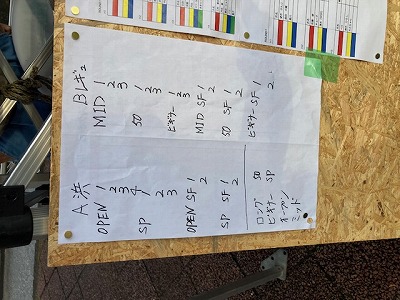 A浜
OPEN 1
2
3
4
SP 1
2
3
OPEN SF 1
2
SP SF 1
2
ロング 50
ビギナー SP
オープン
ミッド
Bレギュ
MID 1
2
3
50 1
2
3
ビギナー 1
2
3
MID SF 1
2
50 SF 1
2
ビギナー SF 1
2